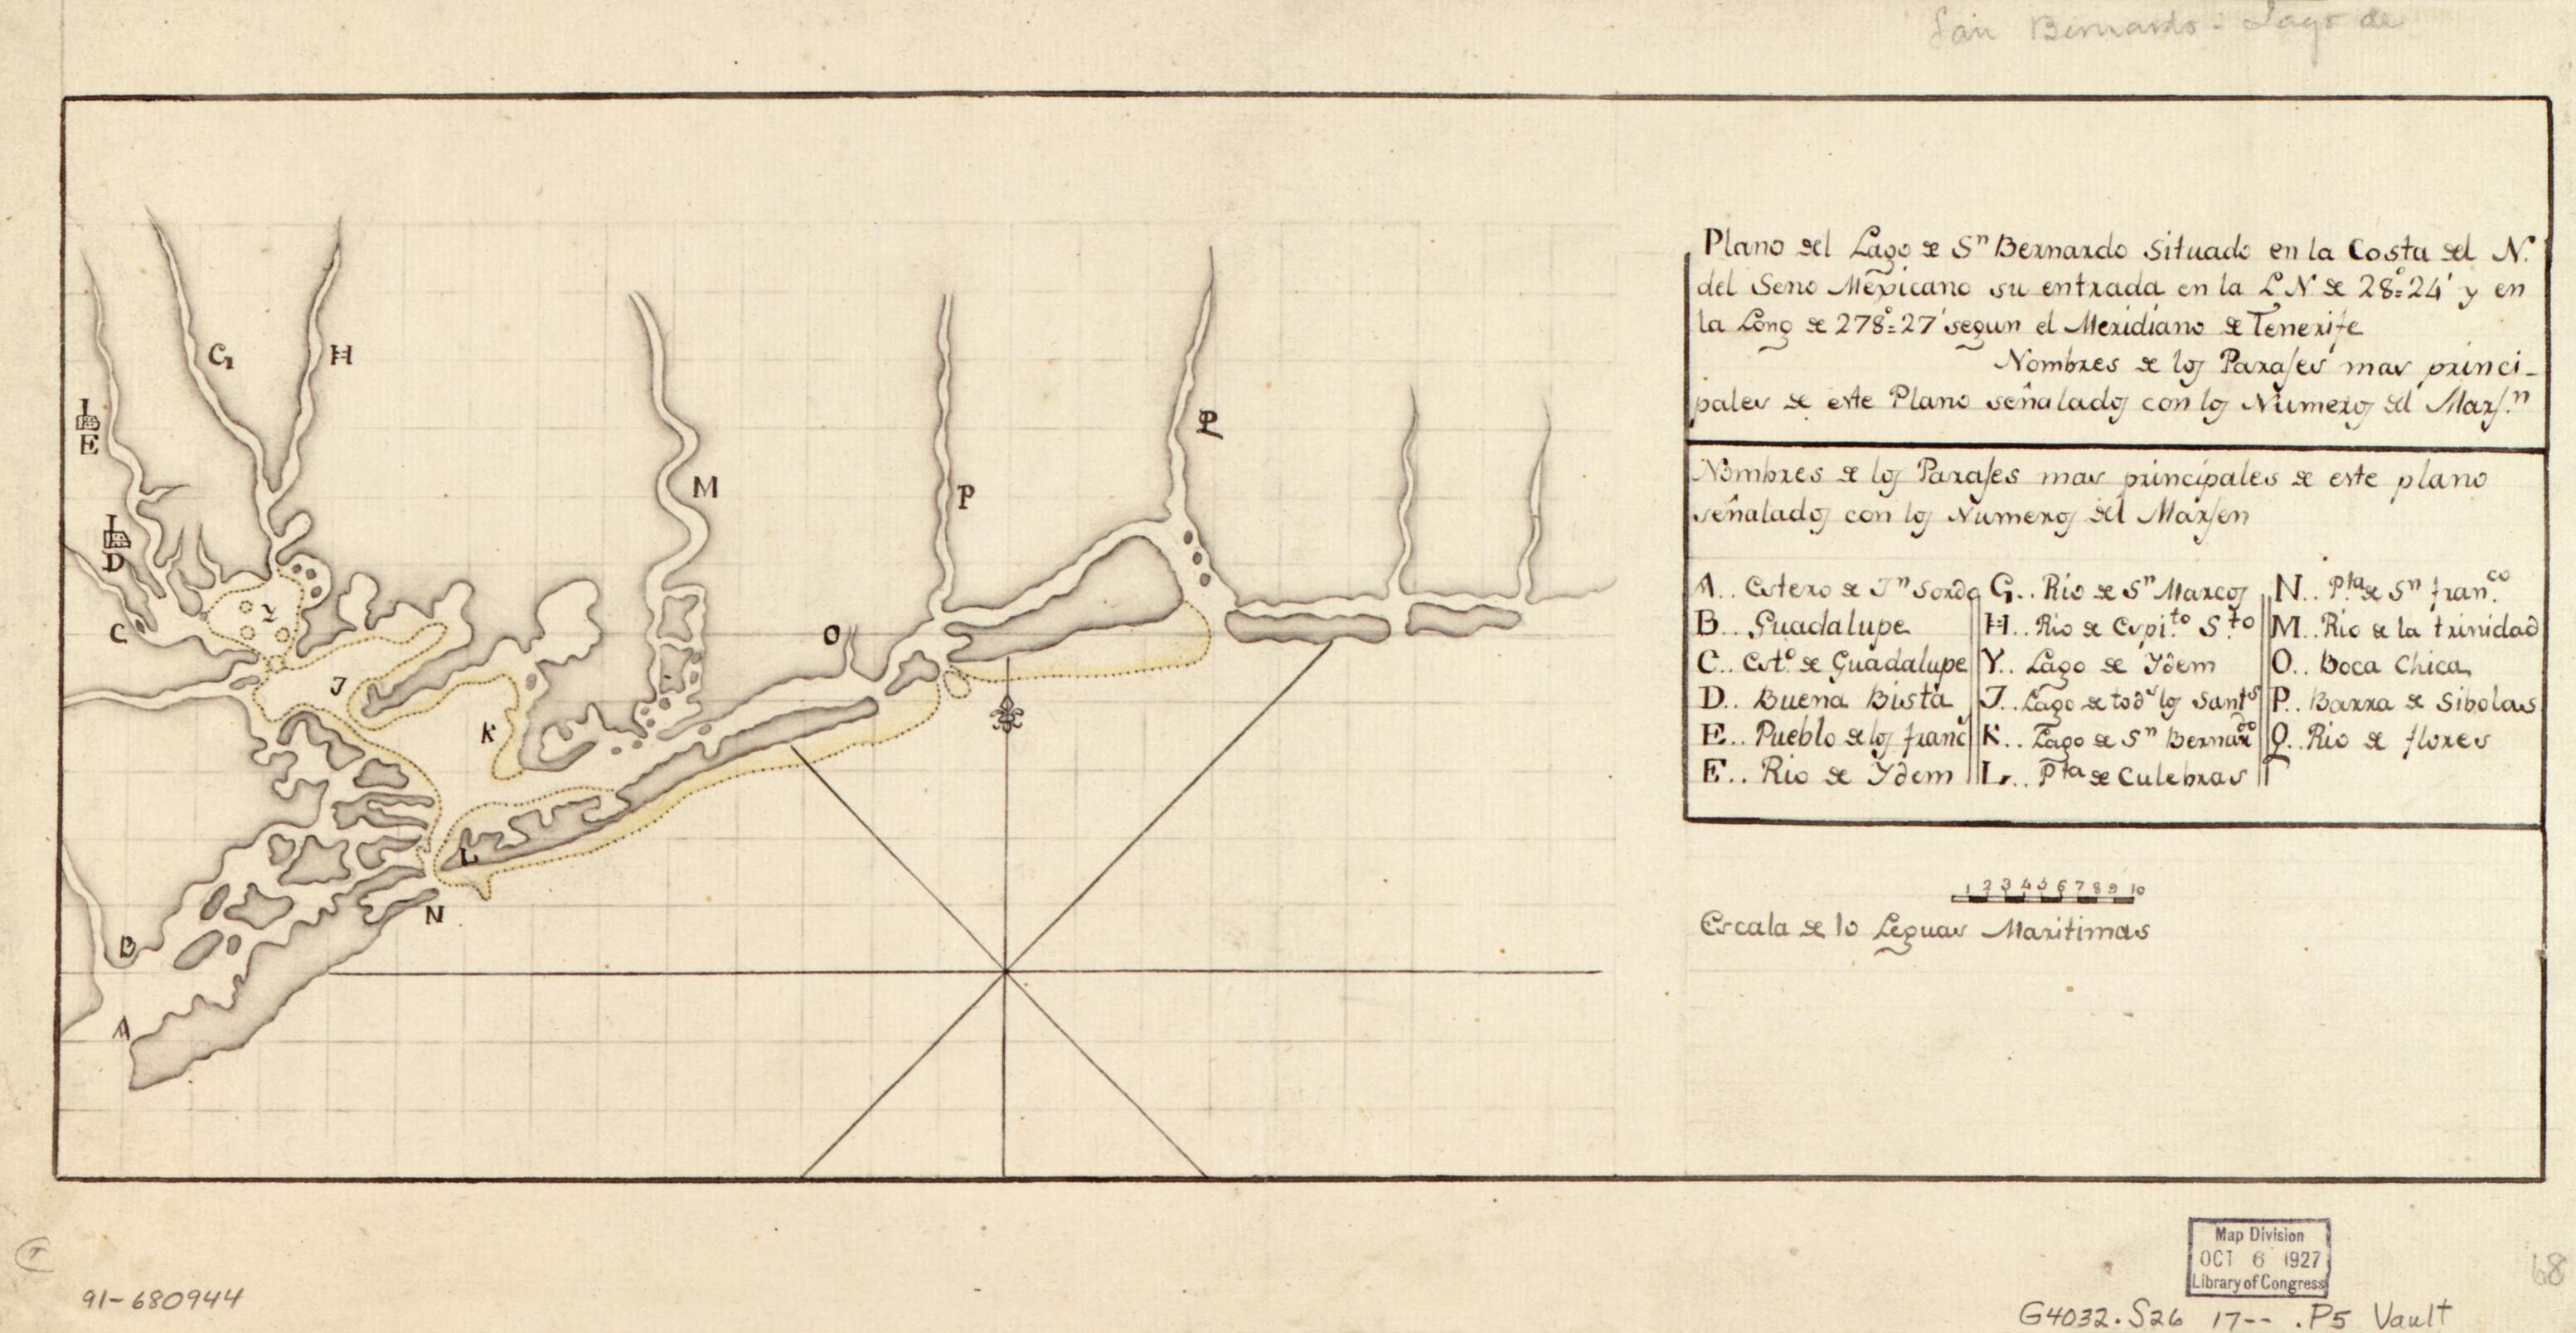 San Bernardo - Lago de
Plano del Lago de Sn Bernardo Situado en la Costa del N.
del Seno Mexicano su entrada en la L N de 28°=24' y en
la Long de 278°=27' segun el Meridiano de Tenerife
Nombres de los Parajes mas princi-
pales de este Plano señalados con los Numeros del Marj.n
Nombres de los Parajes mas principales de este plano
señalados con los Numeros del Marjen
A.. Estero de Jn Sordo
B.. Guadalupe
C.. Esto. de Guadalupe
D.. Buena Bista
E.. Pueblo de los franc
E.. Rio de Ydem
G.. Rio de Sn Marcos
H.. Rio de Espi.to S.to
Y.. Lago de Ydem
J.. Lago de tods los Sants
K.. Lago de Sn Bernardo
L.. Pta de Culebras
N.. Pta de Sn fran.co
M.. Rio de la trinidad
O.. Boca Chica
P.. Barra de Sibolas
Q.. Rio de flores
1 2 3 4 5 6 7 8 9 10
Escala de 10 Leguas Maritimas
G
H
E
D
C
Y
J
K
M
P
P
O
L
N
B
A
Map Division
OCT 6 1927
Library of Congress
68
91-680944
G4032.S26 17-- .P5 Vault